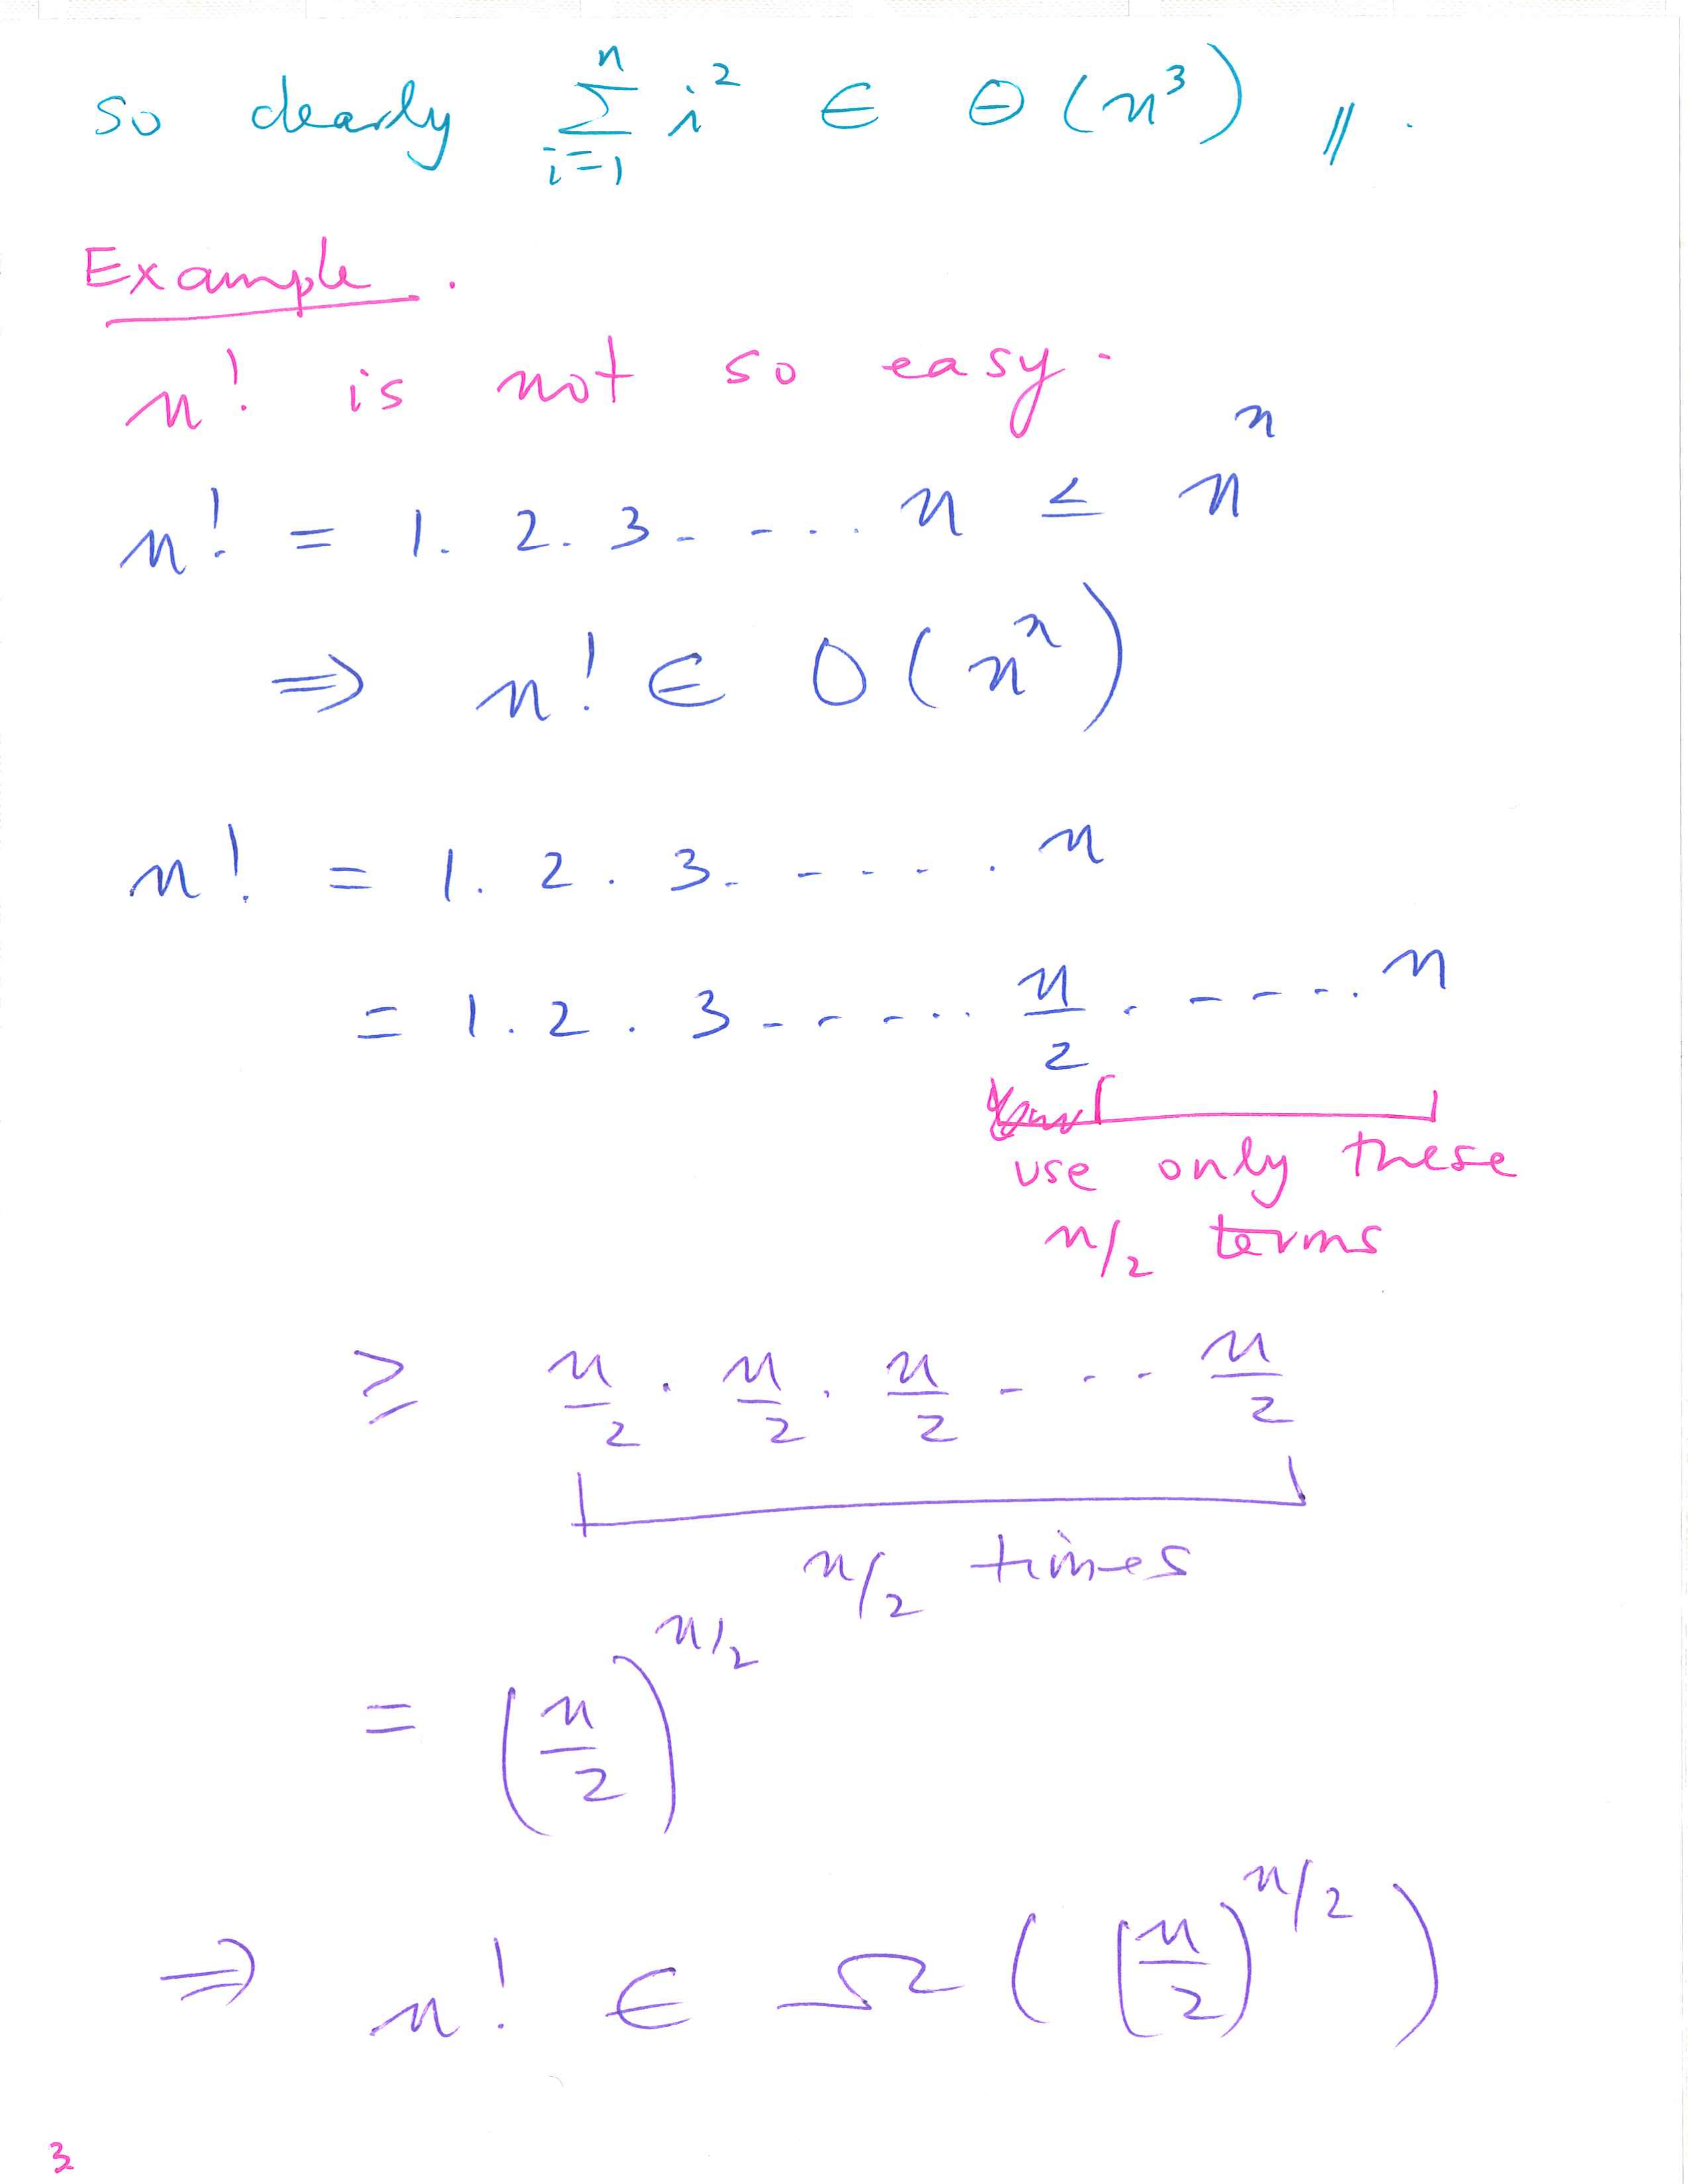 so clearly ∑_{i=1}^{n} i² ∈ Θ(n³) //.
Example.
n! is not so easy.
n! = 1. 2. 3. - ... n ≤ n^n
⇒ n! ∈ O(n^n)
n! = 1. 2. 3. - - - . . n
= 1. 2. 3 - - - ... n/2 . - - - .. n
use only these
n/2 terms
≥ n/2 . n/2 . n/2 - - .. n/2
n/2 times
= (n/2)^{n/2}
⇒ n! ∈ Ω((n/2)^{n/2})
3